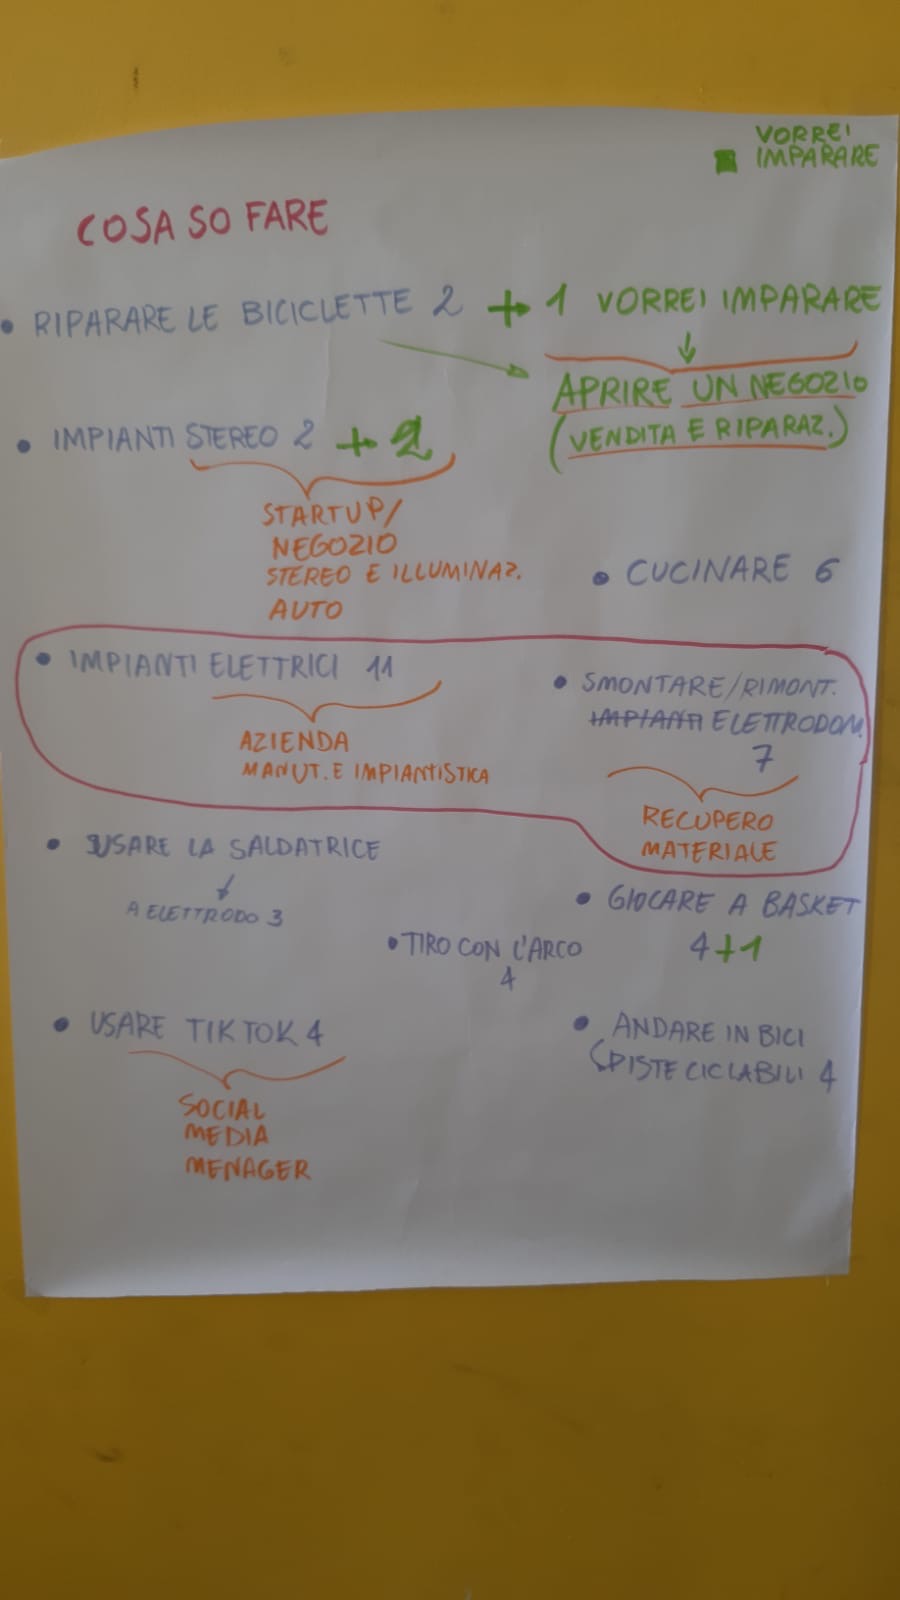 VORREI
IMPARARE
COSA SO FARE
• RIPARARE LE BICICLETTE 2 + 1 VORREI IMPARARE
↓
APRIRE UN NEGOZIO
(VENDITA E RIPARAZ.)
• IMPIANTI STEREO 2 + 2
STARTUP/
NEGOZIO
STEREO E ILLUMINAZ.
AUTO
• CUCINARE 6
• IMPIANTI ELETTRICI 11
AZIENDA
MANUT. E IMPIANTISTICA
• SMONTARE/RIMONT.
IMPIANTI ELETTRODOM.
7
RECUPERO
MATERIALE
• USARE LA SALDATRICE
↓
A ELETTRODO 3
• GIOCARE A BASKET
4+1
• TIRO CON L'ARCO
4
• USARE TIK TOK 4
SOCIAL
MEDIA
MENAGER
• ANDARE IN BICI
(PISTE CICLABILI 4